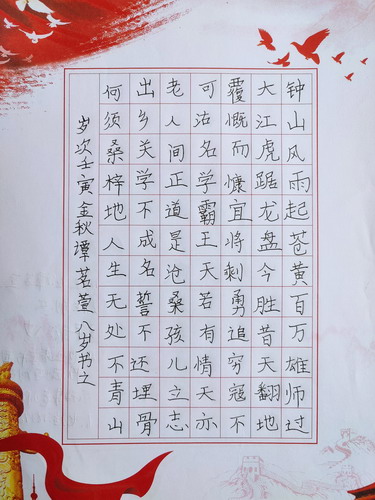 钟山风雨起苍黄百万雄师过
大江虎踞龙盘今胜昔天翻地
覆慨而慷宜将剩勇追穷寇不
可沽名学霸王天若有情天亦
老人间正道是沧桑孩儿立志
出乡关学不成名誓不还埋骨
何须桑梓地人生无处不青山
岁次壬寅金秋谭茗萱八岁书之